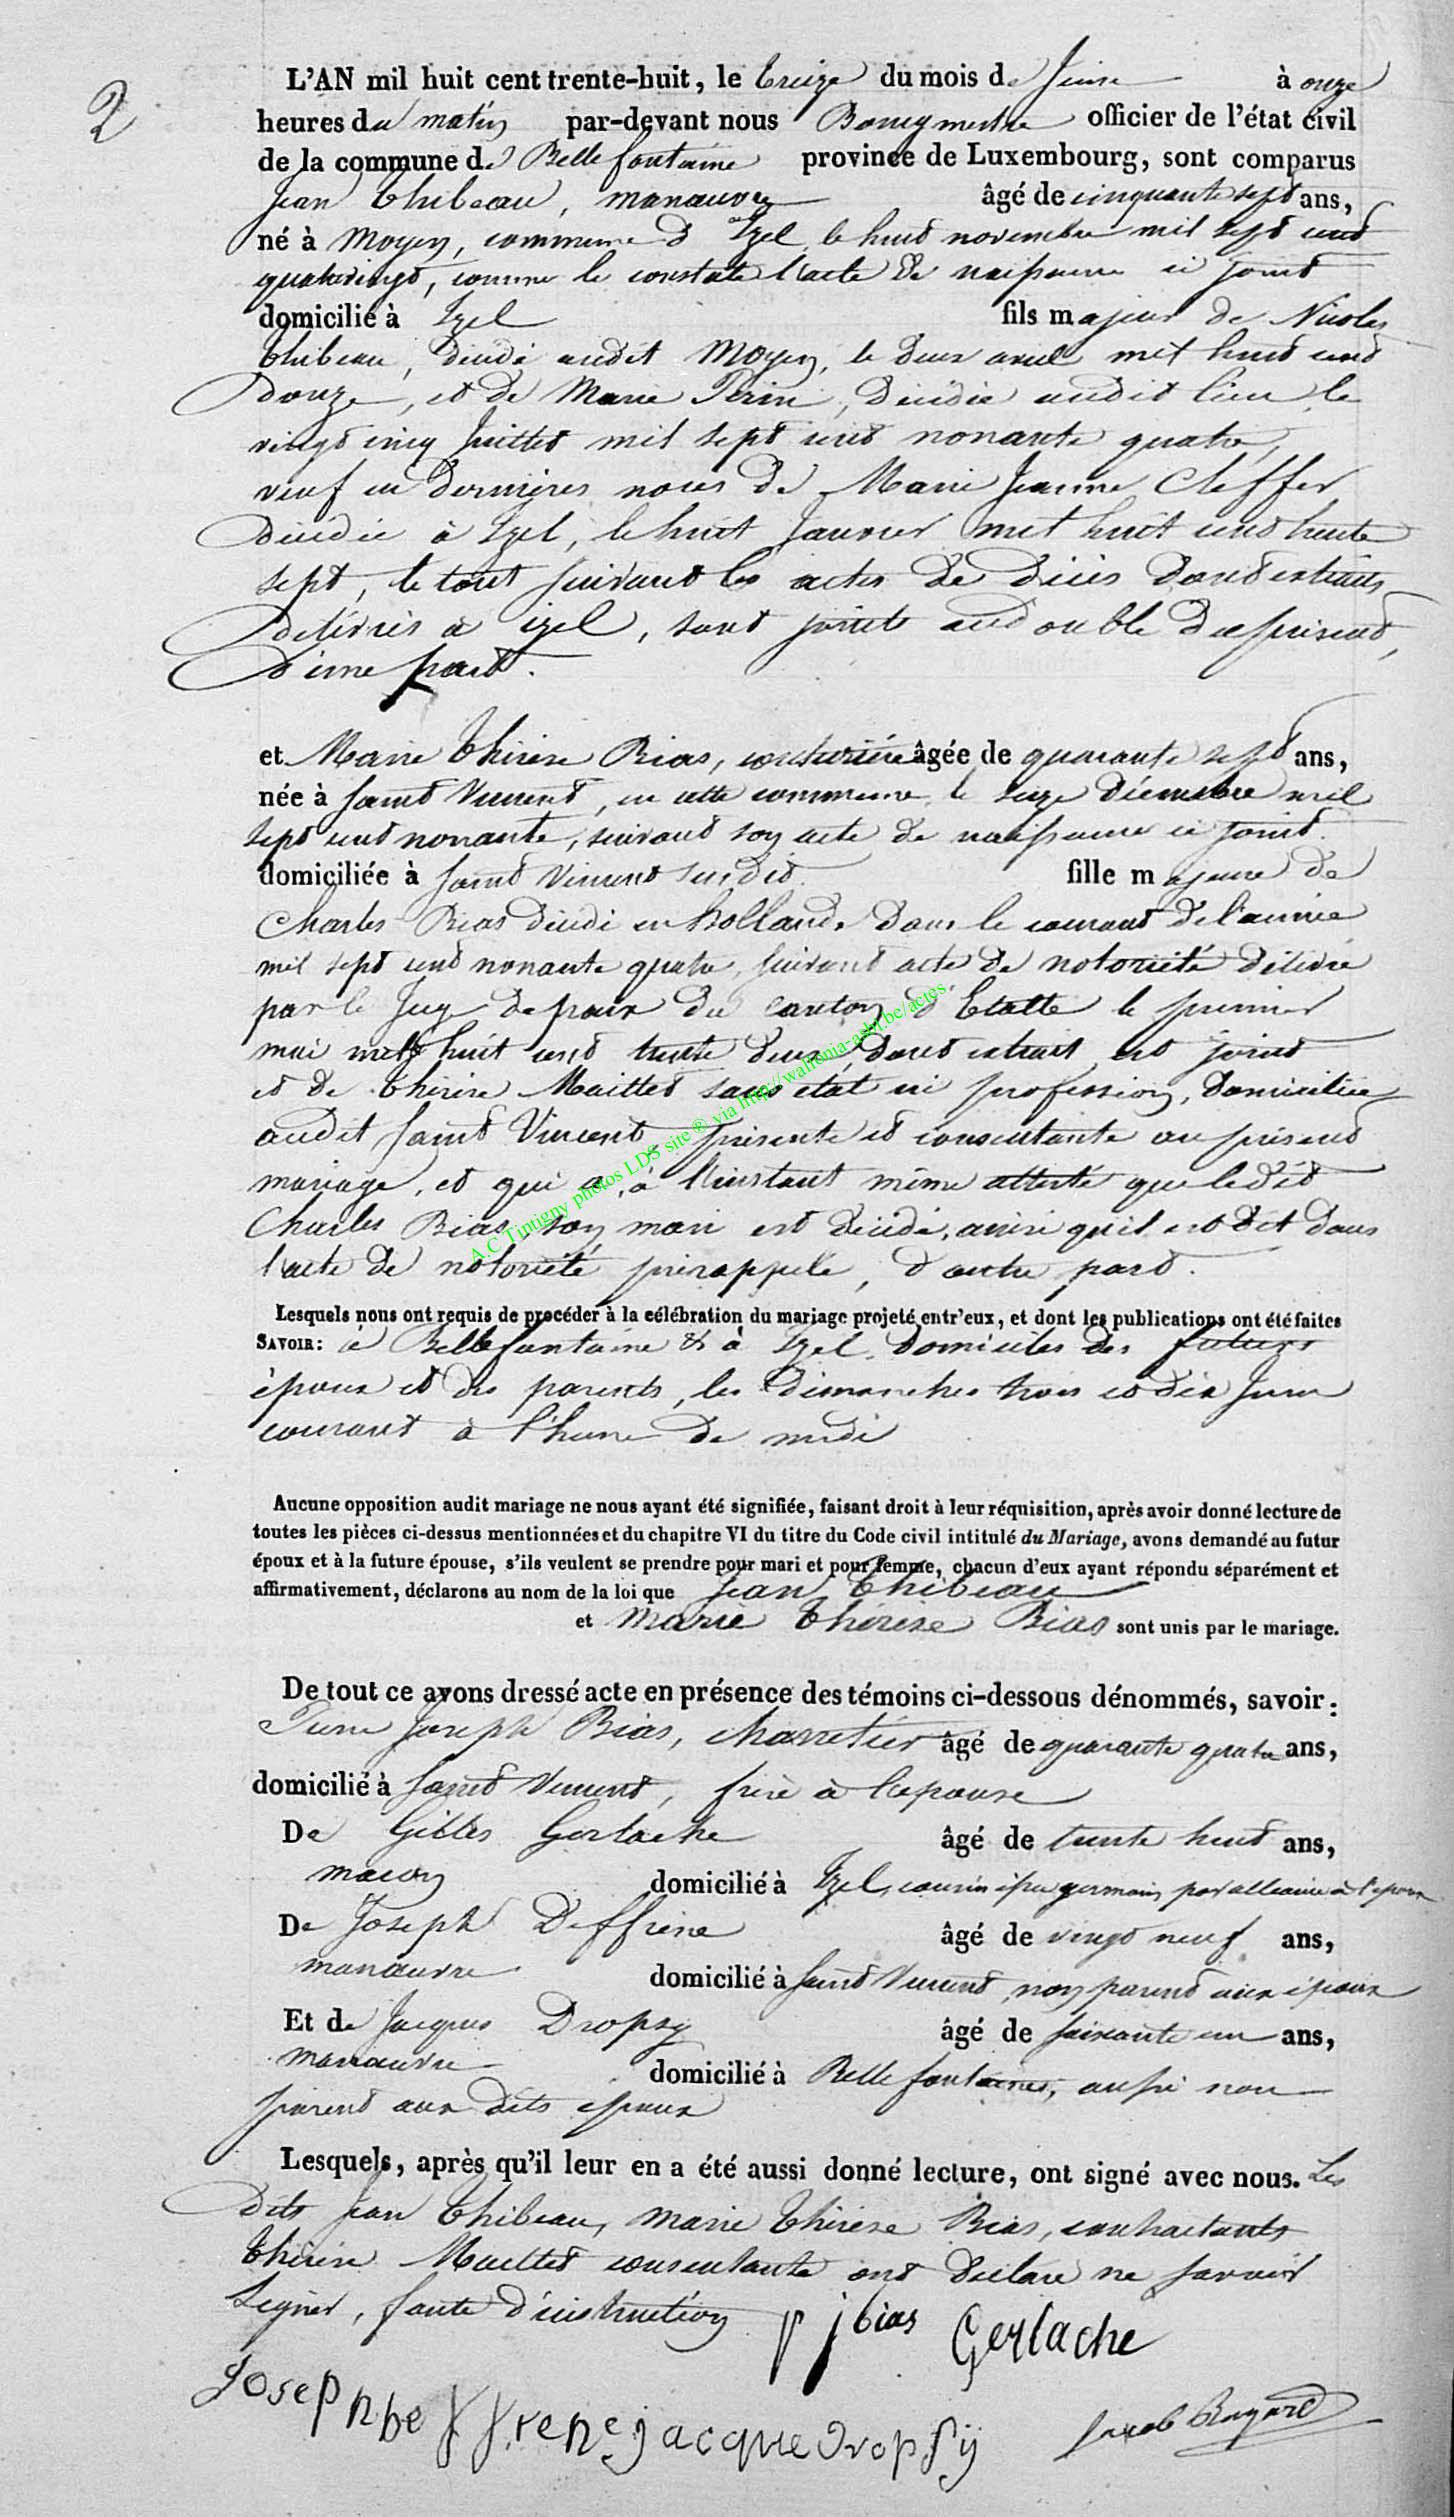 2
L'AN mil huit cent trente-huit, le treize du mois de Juin à onze
heures du matin par-devant nous Bourgmestre officier de l'état civil
de la commune de Bellefontaine province de Luxembourg, sont comparus
Jean Thibeau, manœuvre âgé de cinquante sept ans,
né à Moyen, commune d'Izel, le huit novembre mil sept cent
quatrevingt, comme le constate l'acte de naissance ci joint
domicilié à Izel fils majeur de Nicolas
Thibeau, décédé audit Moyen, le deux avril mil huit cent
Douze, et de Marie Perin, décédée audit lieu le
vingt cinq Juillet mil sept cent nonante quatre,
veuf en dernières noces de Marie Jeanne Cleffer
Décédée à Izel, le huit Janvier mil huit cent trente
sept, le tout suivant les actes de décès dont extraits
délivrés à izel, sont joints au double du présent,
d'une part.
et Marie Thérèse Bias, couturière âgée de quarante sept ans,
née à Saint Vincent, en cette commune le seize Décembre mil
sept cent nonante, suivant son acte de naissance ci joint.
domiciliée à Saint Vincent susdit. fille majeure de
Charles Bias décédé en hollande dans le courant de l'année
mil sept cent nonante quatre, suivant acte de notoriété délivré
par le Juge de paix du canton d'Etalle le premier
mai mil huit cent trente deux dont extrait est joint
et de Thérèse Maillet sans état ni profession, domiciliée
audit Saint Vincent présente et consentante au présent
mariage, et qui a, à l'instant même attesté que ledit
Charles Bias son mari est décédé, ainsi qu'il est dit dans
l'acte de notoriété prérappelé, d'autre part.
A.C Tintigny photos LDS site ® via http://wallonia-asbl.be/actes
Lesquels nous ont requis de procéder à la célébration du mariage projeté entr'eux, et dont les publications ont été faites
SAVOIR: à Bellefontaine & à Izel, domiciles des futurs
époux et des parents, les dimanches trois et dix Juin
courant à l'heure de midi
Aucune opposition audit mariage ne nous ayant été signifiée, faisant droit à leur réquisition, après avoir donné lecture de
toutes les pièces ci-dessus mentionnées et du chapitre VI du titre du Code civil intitulé du Mariage, avons demandé au futur
époux et à la future épouse, s'ils veulent se prendre pour mari et pour femme, chacun d'eux ayant répondu séparément et
affirmativement, déclarons au nom de la loi que Jean Thibeau
et Marie Thérèse Bias sont unis par le mariage.
De tout ce avons dressé acte en présence des témoins ci-dessous dénommés, savoir:
Pierre Joseph Bias, charretier âgé de quarante quatre ans,
domicilié à Saint Vincent, frère à l'épouse
De Gilles Gerlache âgé de trente huit ans,
maçon domicilié à Izel, cousin germain par alliance à l'époux
De Joseph Deffrène âgé de vingt neuf ans,
manœuvre domicilié à Saint Vincent, non parent aux époux
Et de Jacques Dropsy âgé de soixante un ans,
manœuvre domicilié à Bellefontaine, aussi non
parent aux dits époux
Lesquels, après qu'il leur en a été aussi donné lecture, ont signé avec nous. Les
dits Jean Thibeau, Marie Thérèse Bias, contractants
Thérèse Maillet consentante ont déclaré ne savoir
signer, faute d'instruction
p j bias Gerlache
Joseph be ffrene jacque dropsÿ